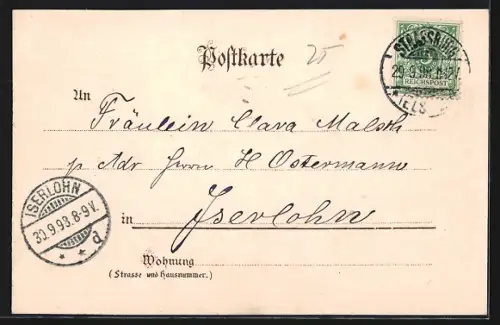 Postkarte
25
STRASSBURG
29.9.98.
(ELS
REICHSPOST
An
Fräulein Clara
p. Adr Herrn H Ostermann
in Iserlohn
ISERLOHN
30.9.98.8-9V.
* * d
Wohnung
(Strasse und Hausnummer.)